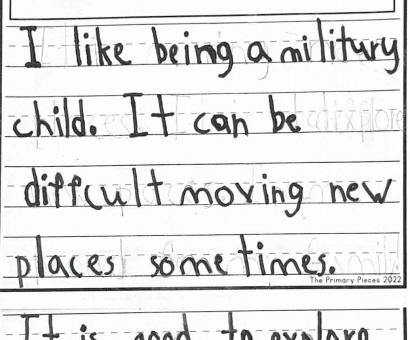 I like being a militury
child. It can be
diffcult moving new
places some times.
The Primary Pieces 2022
It is good to explore